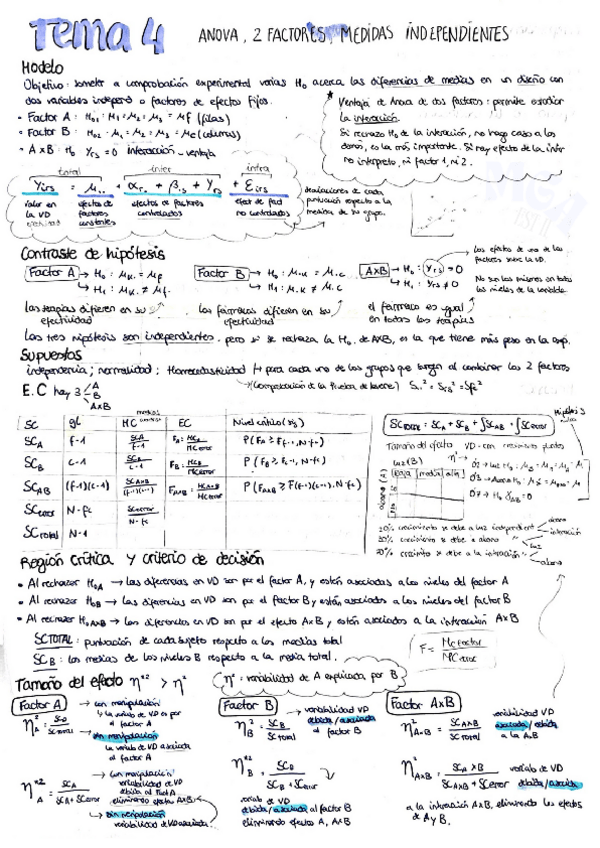 Tema 4
ANOVA, 2 FACTORES, MEDIDAS INDEPENDIENTES
Modelo
Objetivo: someter a comprobación experimental varias H₀ acerca las diferencias de medias en un diseño con
dos variables independ o factores de efectos fijos.
• Factor A: H₀₁: μ₁ = μ₂ = μ₃ = μf (filas)
• Factor B: H₀₂: μ₁ = μ₂ = μ₃ = μc (columnas)
• A x B: H₀ γrs = 0 interacción - ventaja
* Ventaja de Anova de dos factores: permite estudiar
la interacción.
Si rechazo H₀ de la interacción, no hago caso a los
demás, es la más importante. Si hay efecto de la inter
no interpreto, ni factor 1, ni 2.
total inter intra
Yirs = μ.. + αr. + β.s + γrs + Eirs
valor en la VD
efectos de factores constantes
efectos de factores controlados
efect de fact no controlados
desviaciones de cada
puntuación respecto a la
media de su grupo.
Contraste de hipótesis
Factor A → H₀: μ = μf
→ H₁: μ ≠ μf.
Factor B → H₀: μ = μ.c
→ H₁: μ ≠ μ.c
AxB → H₀: γrs = 0
→ H₁: γrs ≠ 0
Los efectos de uno de los
factores sobre la VD.
No son los mismos en todos
los niveles de la variable.
las terapias difieren en su efectividad
los fármacos difieren en su efectividad
el fármaco es igual en todas las terapias
Las tres hipótesis son independientes. pero si se rechaza la H₀ de AXB, es la que tiene más peso en la exp.
Supuestos
independencia; normalidad; Homocedasticidad → para cada uno de los grupos que surgen al combinar los 2 factores
→ (Comprobación de la Prueba de Levene)
E.C hay 3 A
B
AxB
SC gl MC EC Nivel crítico
SCA f-1 SCA / f-1 FA = MCA / MCerror P(FA ≥ Ff-1, N-fc)
SCB c-1 SCB / c-1 FB = MCB / MCerror P(FB ≥ Fc-1, N-fc)
SCAB (f-1)(c-1) SCAXB / (f-1)(c-1) FAXB = MCAXB / MCerror P(FAXB ≥ F(f-1)(c-1), N-fc)
SCerror N-fc SCerror / N-fc
SCtotal N-1
SCTOTAL = SCA + SCB + SCAB + SCerror
Hipótesis
Tamaño del efecto VD - con crecimiento plantas
luz (B)
baja media alta
abono (A)
20% crecimiento se debe a luz independient
30% crecimiento se debe a abono
20% crecimiento se debe a la interacción
abono
interacción
luz
abono
Región crítica y criterio de decisión
• Al rechazar H₀A → las diferencias en VD son por el factor A, y están asociadas a los niveles del factor A
• Al rechazar H₀B → las diferencias en VD son por el factor B y están asociados a los niveles del factor B
• Al rechazar H₀AXB → las diferencias en VD son por el efecto AxB y están asociados a la interacción AxB
SCTOTAL: puntuación de cada sujeto respecto a las medias total
SCB: las medias de los niveles B respecto a la media total.
F = MCFactor / MCerror
Tamaño del efecto η*² > η²
η²: variabilidad de A explicada por B
Factor A
η²A = SCA / SCTOTAL
→ con manipulación
la variab de VD es por
el factor A
→ sin manipulación
la variab de VD asociada
al factor A
η*²A = SCA / SCA + SCerror
→ con manipulación
variabilidad de VD
debida al fact A
eliminando efectos AxB
→ sin manipulación
variabilidad de VD asociada
Factor B
η²B = SCB / SCtotal
→ variabilidad VD
debida/asociada
al factor B
η*²B = SCB / SCB + SCerror
variab de VD
debida/asociada al factor B
eliminando efectos A, AxB
Factor AxB
η²AxB = SCAXB / SCTOTAL
variabilidad VD
asociada/debida
a la AxB
η*²AxB = SCAXB / SCAXB + SCerror
variab de VD
debida/asociada
a la interacción AxB, eliminando los efectos
de A y B.